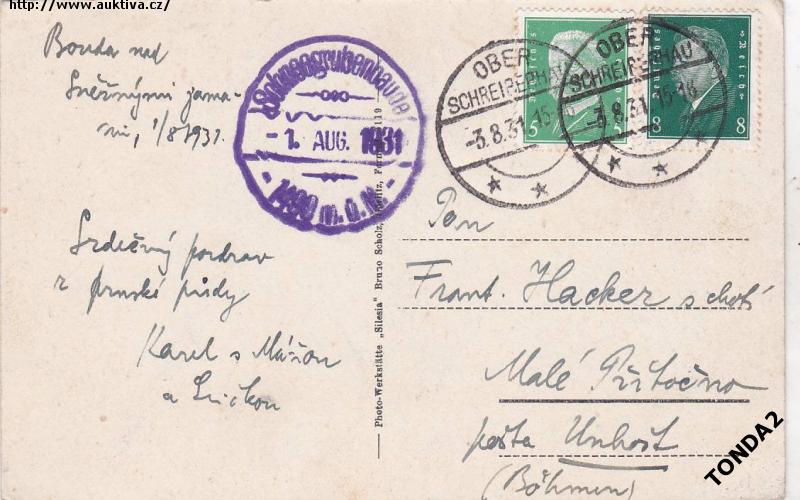 http://www.auktiva.cz/
Bouda nad
Sněžnými jama-
mi, 1/8 1931.
Schneegrubenbaude
-1. AUG. 1931
1490 m.ü.M.
OBER
SCHREIBERHAU
-3.8.31. 15-
OBER
SCHREIBERHAU
-3.8.31. 15-16
5
8 8
Srdečný pozdrav
z pruské půdy
Karel s Mářou
a
Pan
Frant. Hacker s chotí
Malé Přítočno
pošta Unhošť
(Böhmen)
Photo-Werkstätte „Silesia" Bruno Scholz,
TONDA2